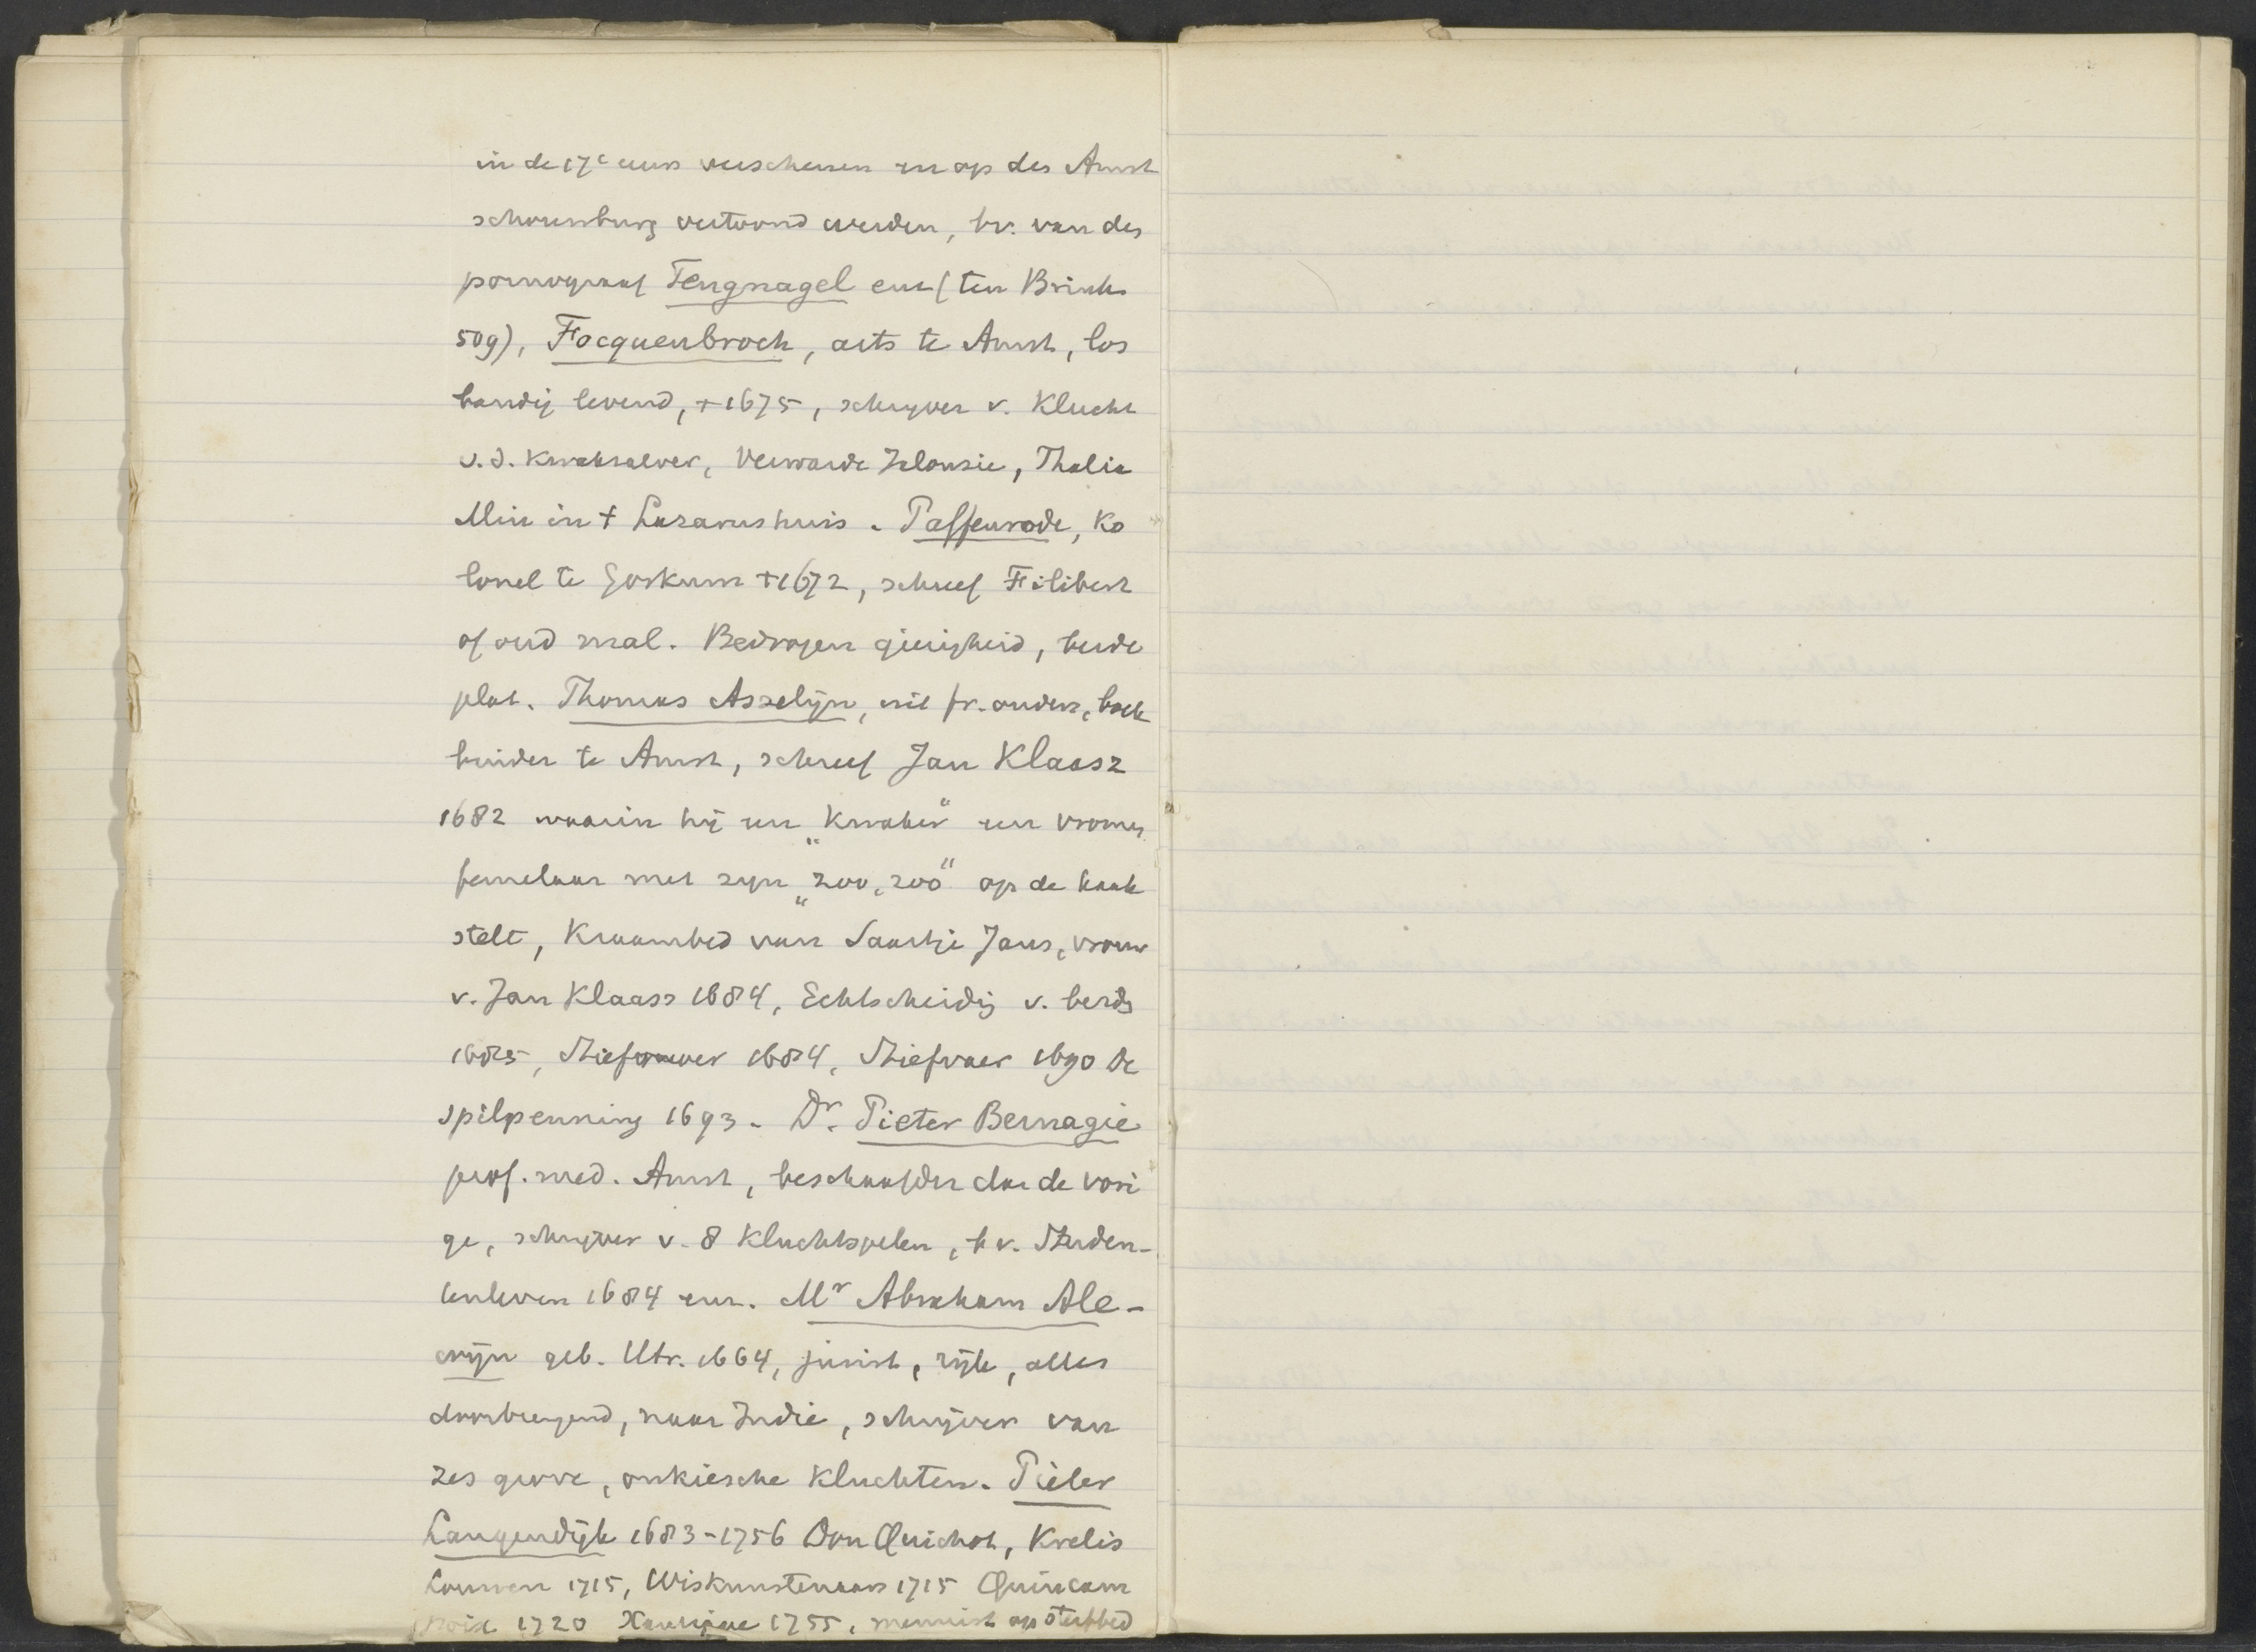 in de 17e eeuw verschenen en op des Amst
schouwburg vertoond werden, bv. van des
pornograaf Tengnagel enz (ten Brink
509), Focquenbroch, arts te Amst, los
bandig levend, +1675, schrijver v. Klucht
v.d. Kwaksalver, Verwarde Jalousie, Thalia
Min in t Lazarushuis. Paffenrode, ko
lonel te Gorkum +1672, schreef Filibert
of oud mal. Bedrogen gierigheid, beide
plat. Thomas Asselijn, uit fr. ouders, boek
binder te Amst, schreef Jan Klaasz
1682 waarin hij een „Kwaker" een vromen
femelaar met zijn „zoo, zoo" op de kaak
stelt, Kraambed van Saartje Jans, vrouw
v. Jan Klaasz 1684, Echtscheidig v. beids
1685, Stiefmoer 1684, Stiefvaer 1690 De
spilpenning 1693 - Dr. Pieter Bernagie
prof. med. Amst, beschaafder dan de vori
ge, schrijver v. 8 Kluchtspelen, bv. Studen-
tenleven 1684 enz. Mr Abraham Ale-
wijn geb. Utr. 1664, jurist, rijk, alles
doorbrengend, naar Indie, schrijver van
zes grove, onkiesche kluchten. Pieter
Langendijk 1683-1756 Don Quichot, Krelis
Louwen 1715, Wiskunstenaars 1715 Quincam
poix 1720 1755, mennist op sterfbed